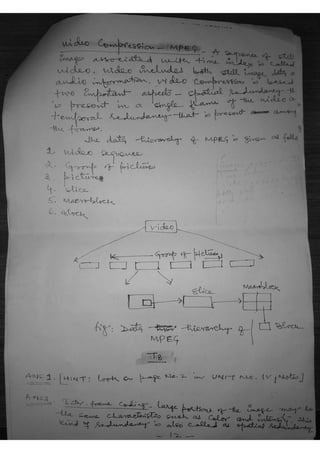 Video Compression - MPEG - A sequence of still
image associated with time index is called
video. Video includes both still image data &
audio information. Video compression is based
two important aspects - spatial redundancy th
is present in a single frame of the video &
temporal redundancy that is present among
the frames.
The data hierarchy of MPEG is given as follo
1. Video sequence
2. Group of pictures
3. picture
4. slice
5. Macroblock
6. Block
Video
Group of pictures
Slice
Macroblock
Block
fig: Data hierarchy of
MPEG
Ans 1. [HINT: look on page No. 2 in UNIT No. IV, Notes]
Inter-frame Coding. Large portions of the image may
the same characteristics such as color and intensity this
kind of redundancy is also called as spatial redundancy
- 12 -